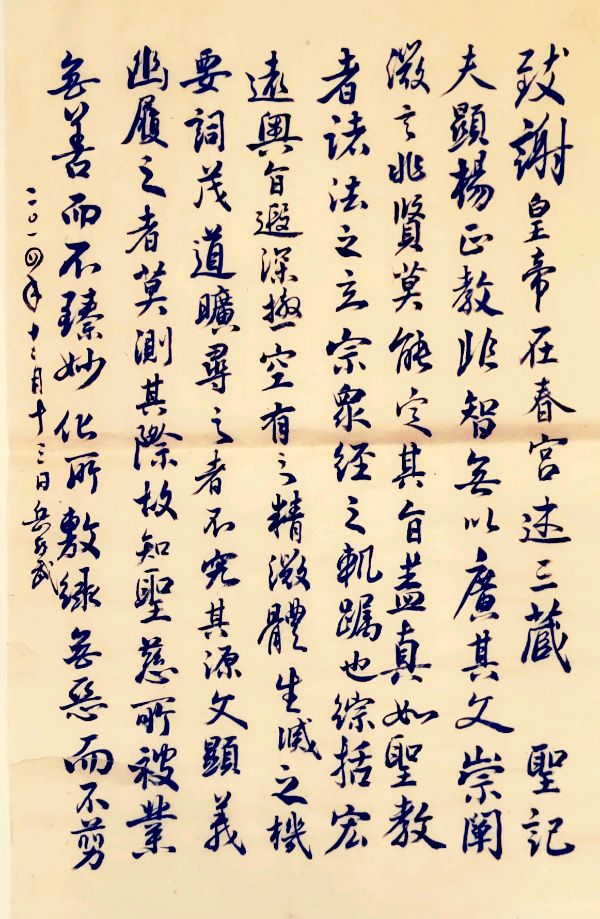 致謝皇帝在春宮述三蔵 聖記
夫顯楊正教非智無以廣其文崇闡
微言非賢莫能定其旨蓋真如聖教
者諸法之立宗眾經之軌躅也綜括宏
遠奧旨遐深極空有之精微體生滅之機
要詞茂道曠尋之者不究其源文顯義
幽履之者莫測其際故知聖慈所被業
無善而不臻妙化所敷緣無惡而不剪
二〇一四年十二月十三日岳武